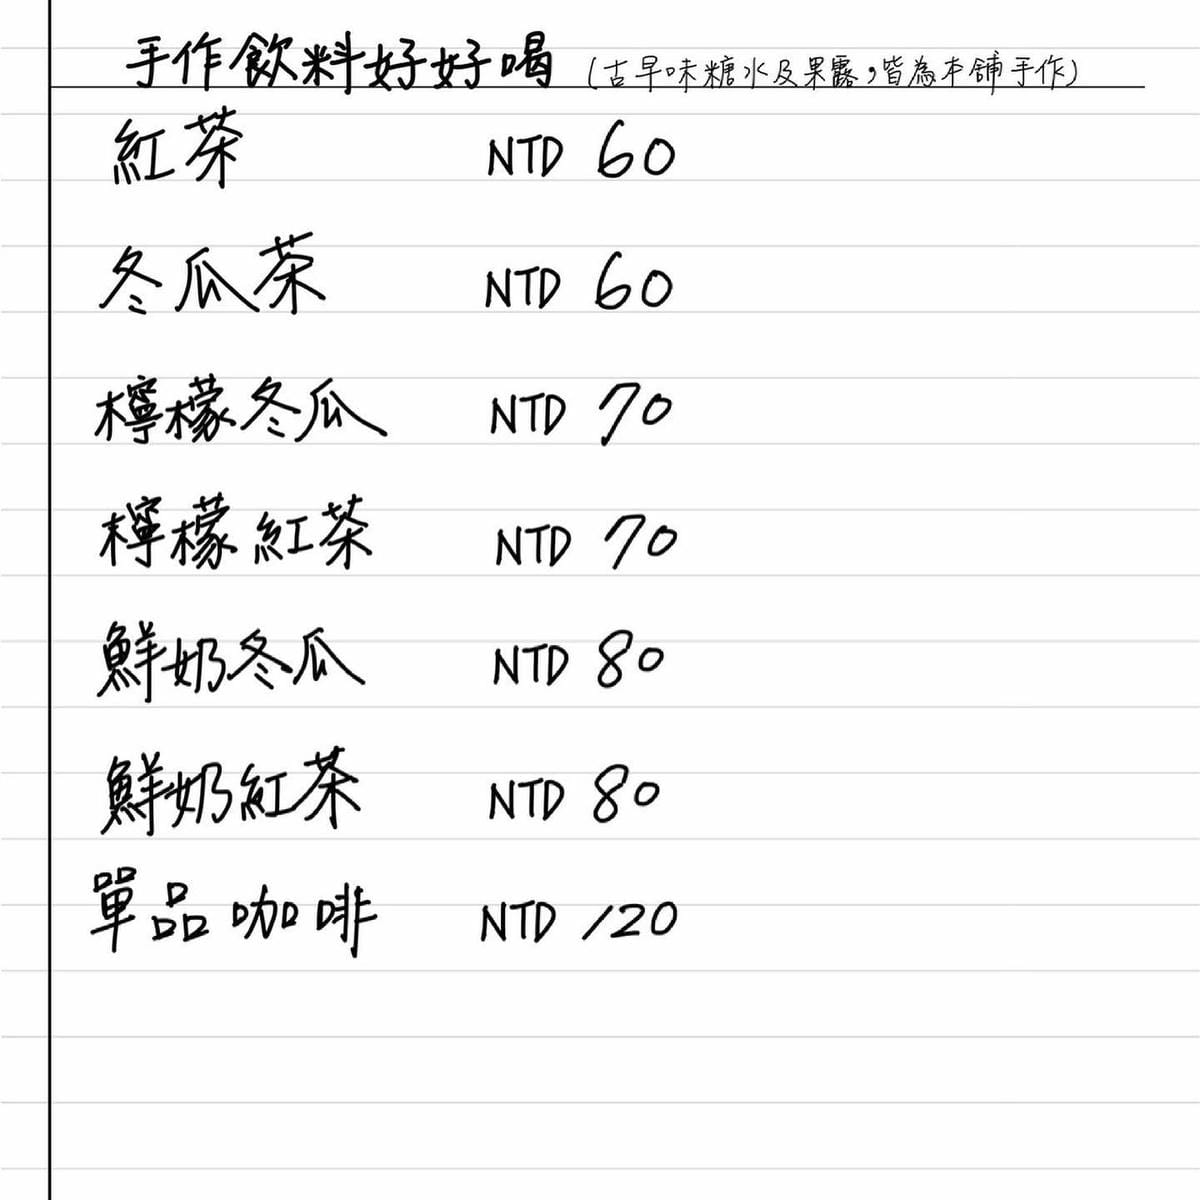 手作飲料好好喝 (古早味糖水及果露，皆為本舖手作)
紅茶 NTD 60
冬瓜茶 NTD 60
檸檬冬瓜 NTD 70
檸檬紅茶 NTD 70
鮮奶冬瓜 NTD 80
鮮奶紅茶 NTD 80
單品咖啡 NTD 120